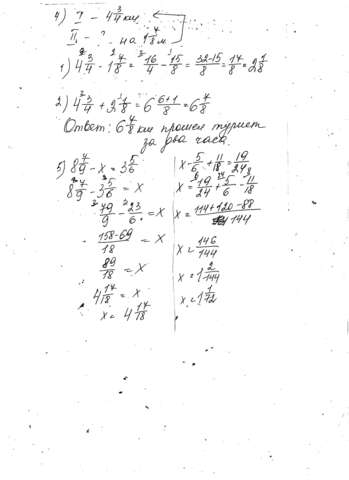 4) I - 4 3/4 км
II - ? на 1 7/8 м.
1) 4 3/4 - 1 7/8 = 16/4 - 15/8 = 32-15/8 = 17/8 = 2 1/8
2) 4 3/4 + 2 1/8 = 6 6+1/8 = 6 7/8
Ответ: 6 7/8 км прошел турист
за два часа.
5) 8 7/9 - x = 3 5/6
8 7/9 - 3 5/6 = x
79/9 - 23/6 = x
158-69/18 = x
89/18 = x
4 17/18 = x
x = 4 17/18
x - 5/6 + 11/18 = 19/24
x = 19/24 + 5/6 - 11/18
x = 114+120-88/144
x = 146/144
x = 1 2/144
x = 1 1/72